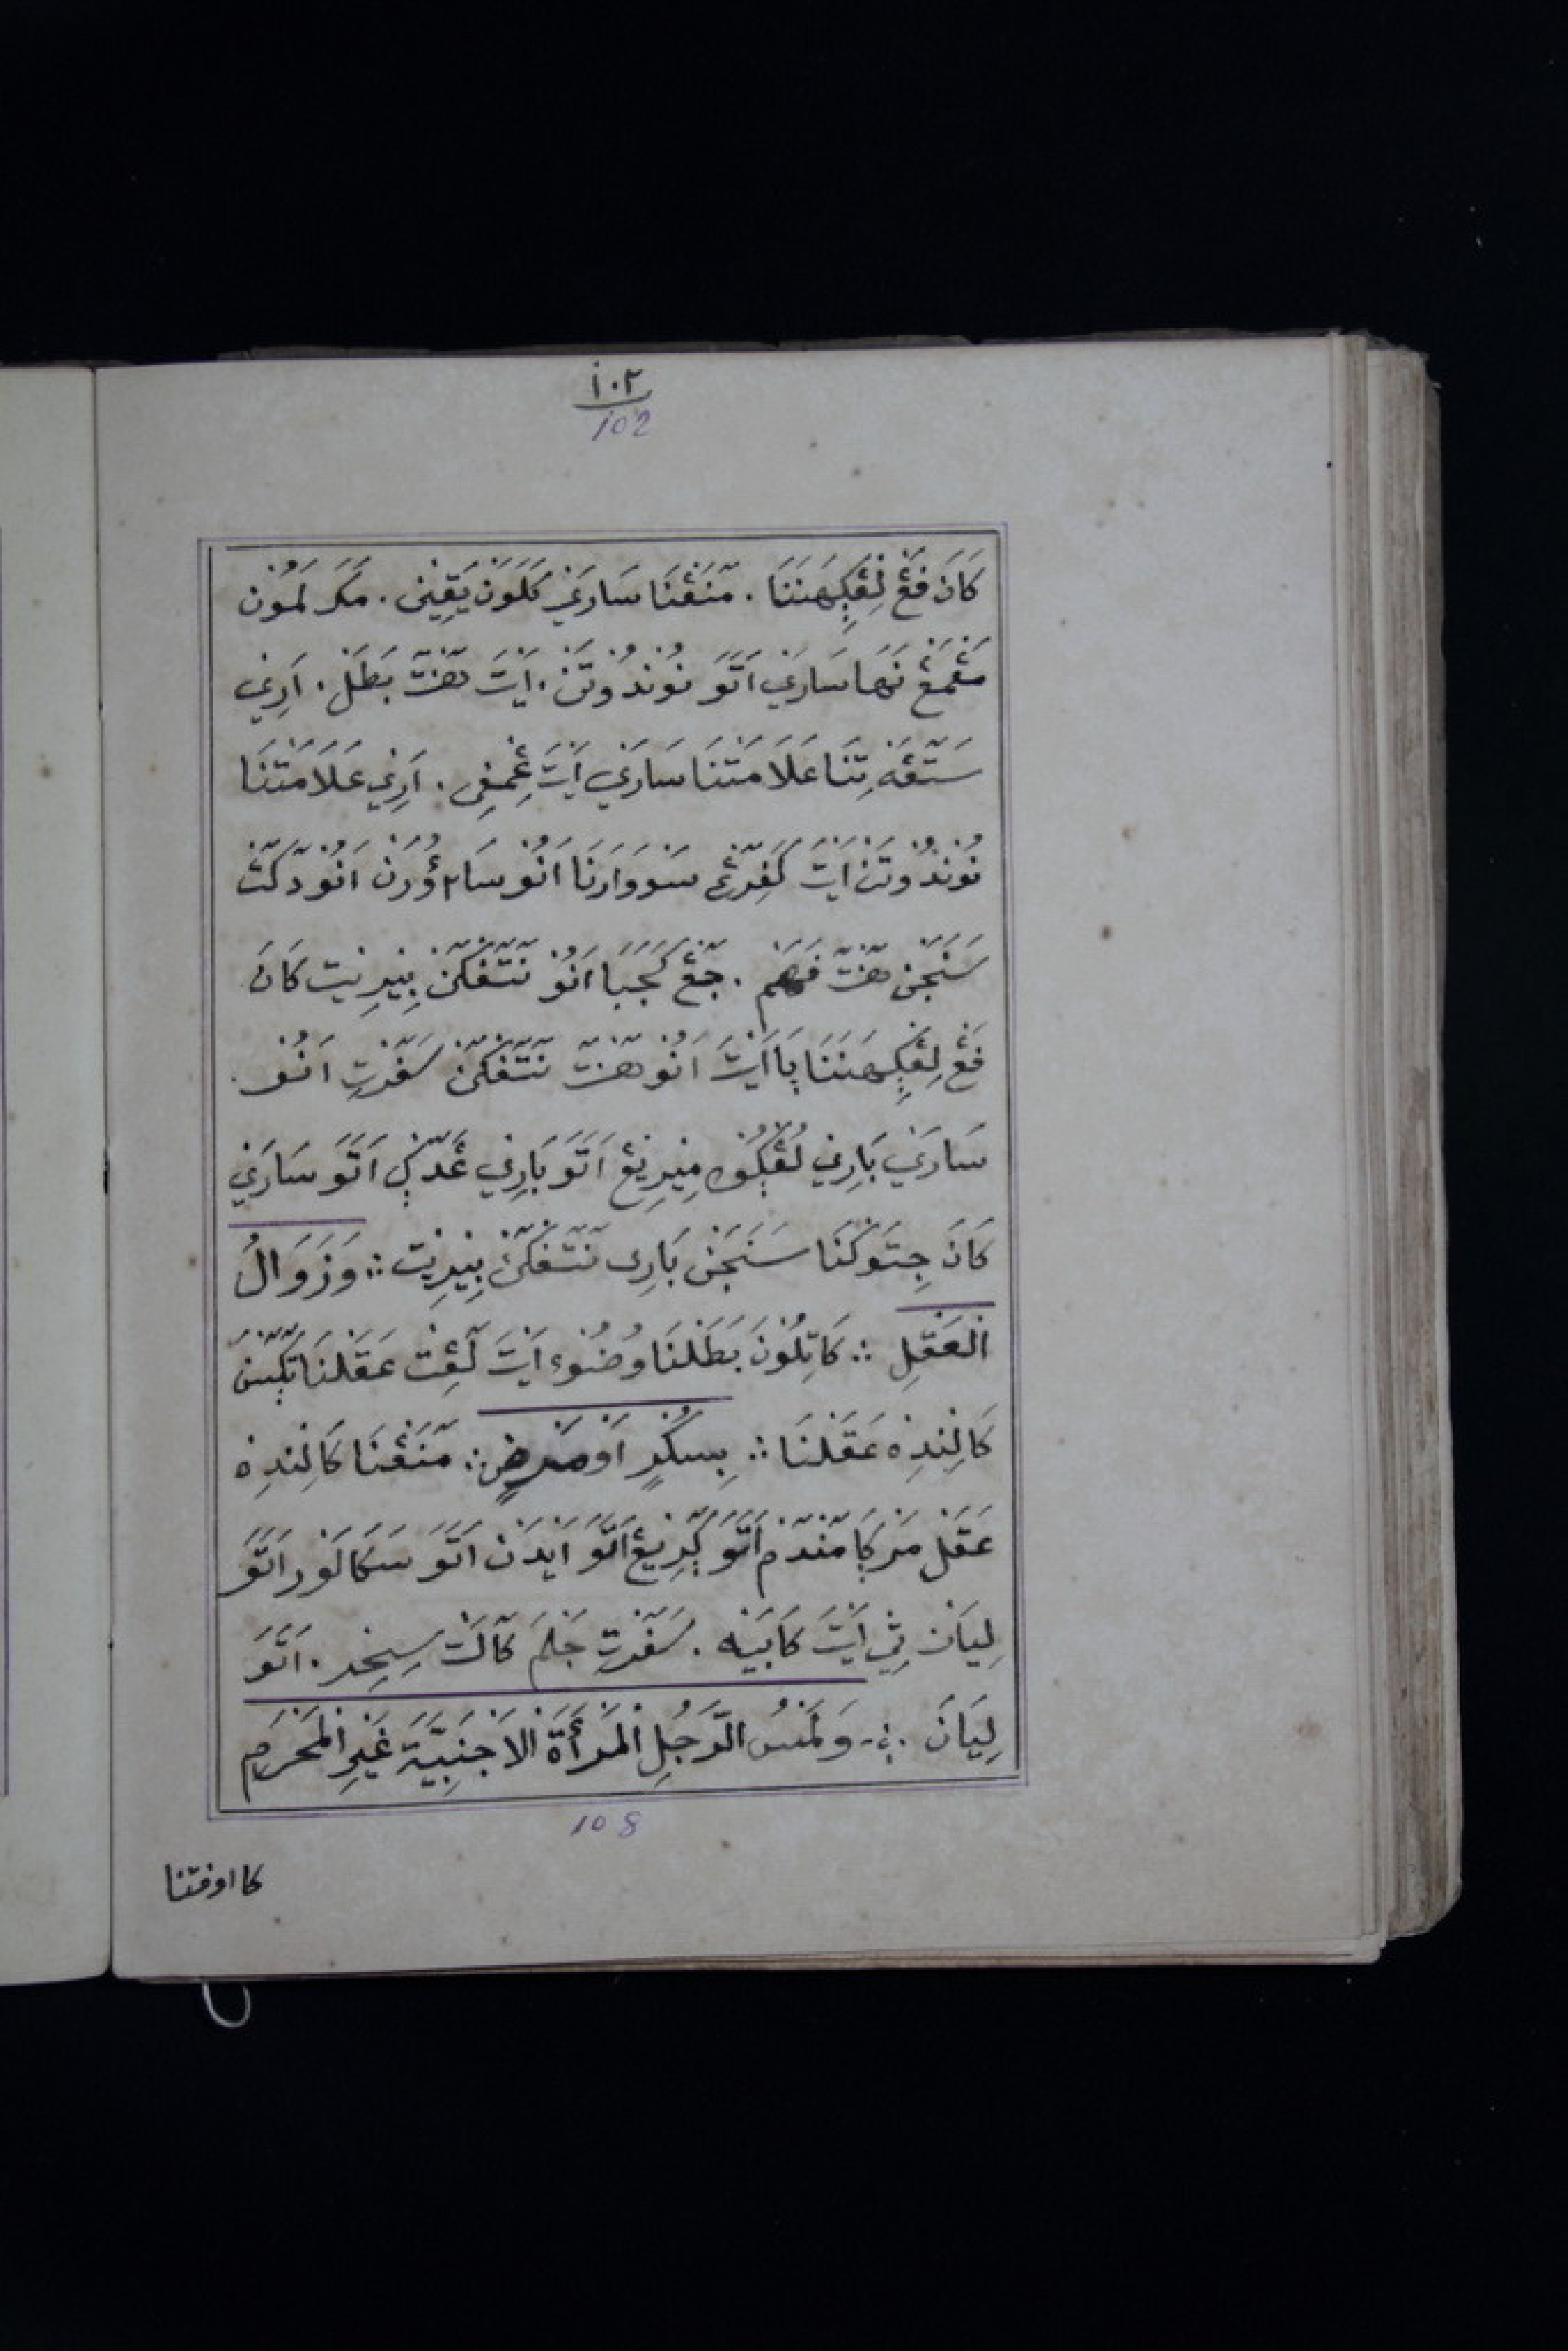 ١٠٢
102
كَانَ فَڠْ لِڠْڮِهَنَنَا . مَنَڠْنَا سَارَغِ كَلَوَنْ يَقِيْنِ . مَكَرَ لَمُوْنَ
مَڠْمَڠْ نَهَا سَارَغِ اَتَّوَ نُوْنْدُوْتَنْ . اَيْتَ هَنْتَ بَطَلْ . اَرِغِي
سَتَڠَهْتِنَا عَلَامَتْنَا سَارَغِي اَيْتَ غِمْفِي . اَرِغِي عَلَامَتْنَا
نُوْنْدُوْتَنْ اَيْتَ كَفِرْڠِى سَوَوَارَنَا اَنُوْ سَامْ ؤُرَنْ اَنُوْ دَكَتْ
سَنَجَنْ هَنْتَ فَهَمْ . جَڠْ كَجَبَا اَنُوْ نَتَّفْكَنْ بِنِرِيْتْ كَانَ
فَڠْ لِڠْڮِهَنَنَا ڮَا اَيْتَ اَنُوْ هَنْتَ نَتَّفْكَنْ سَفَرْتِ اَنُوْ
سَارَغِي بَارِغِي لُڠْڮُوْه مِيْرِيْڠْ اَتَّوَ بَارِغِي عَدَڮِ اَتَّوَ سَارَغِي
كَانَ جِتَوَكْنَا سَنَجَنْ بَارِى نَتَّفْكَنْ بِنِرِيْتْ ∴ وَزَوَالُ
الْعَقْلِ ∴ كَاتِلُوْنَ بَطَلْنَا وُضُوْء اَيْتَ لَڠِتْ عَقَلْنَا تَڮَسْنَ
كَالِنْدِهْ عَقَلْنَا ∴ بِسُكْرٍ اَوْ مَرَضٍ ∴ مَنَڠْنَا كَالِنْدِهْ
عَقَلْ مَرَڮَا مَنْدَمْ اَتَّوَ ڮَرِيْڠْ اَتَّوَ اَيْدَنْ اَتَّوَ سَكَالَوَرْ اَتَّوَ
لِيَانْ ثِيْ اَيْتَ كَابَيَهْ . سَفَرْتِ جَلْمَ كَالَتْ سِيْحِرْ . اَتَّوَ
لِيَانَ ∴ وَلَمْسُ الرَّجُلِ الْمَرْأَةَ الْاَجْنَبِيَّةَ غَيْرِ الْمَحْرَمِ
108
كااوفتنا